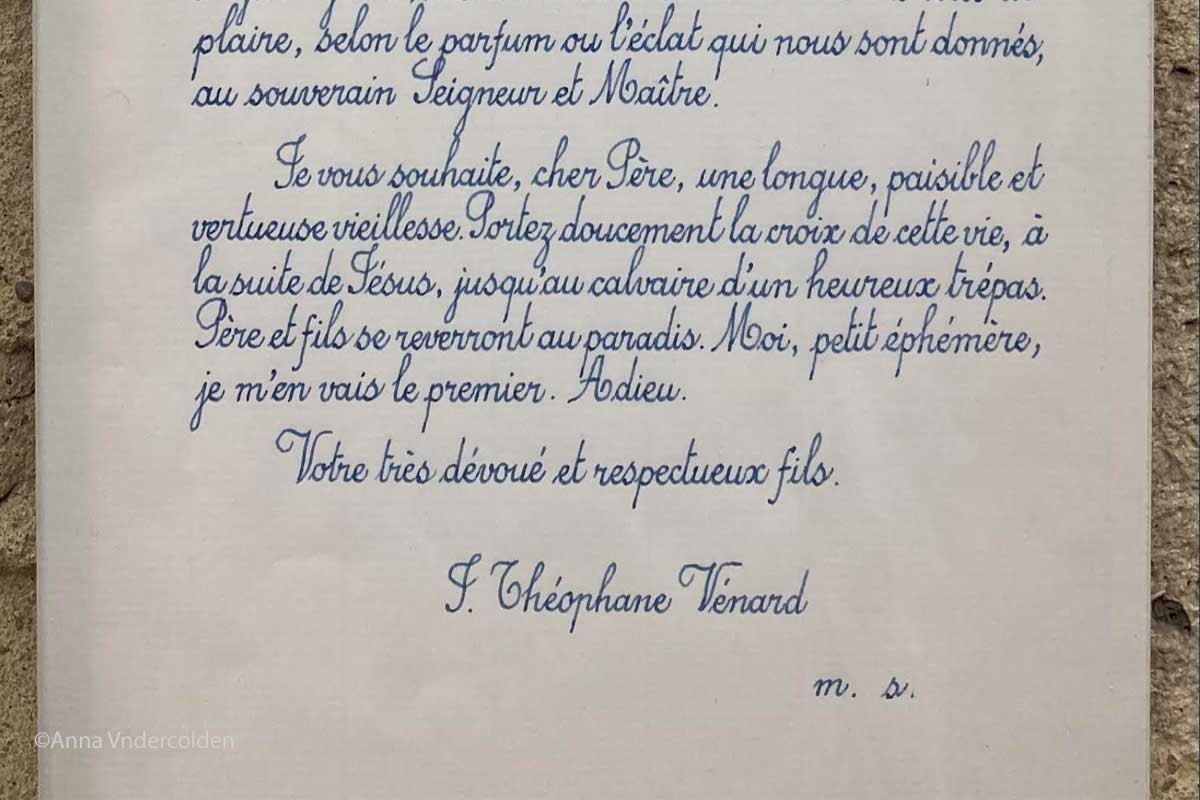 plaire, selon le parfum ou l'éclat qui nous sont donnés,
au souverain Seigneur et Maître.
Je vous souhaite, cher Père, une longue, paisible et
vertueuse vieillesse. Portez doucement la croix de cette vie, à
la suite de Jésus, jusqu'au calvaire d'un heureux trépas.
Père et fils se reverront au paradis. Moi, petit éphémère,
je m'en vais le premier. Adieu.
Votre très dévoué et respectueux fils.
J. Théophane Vénard
m. s.
©Anna Vndercolden